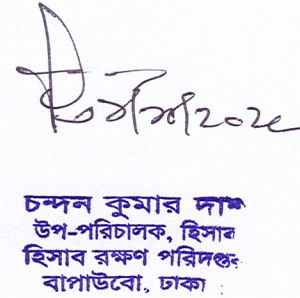 চন্দন কুমার দাস
উপ-পরিচালক, হিসাব
হিসাব রক্ষণ পরিদপ্তর
বাপাউবো, ঢাকা